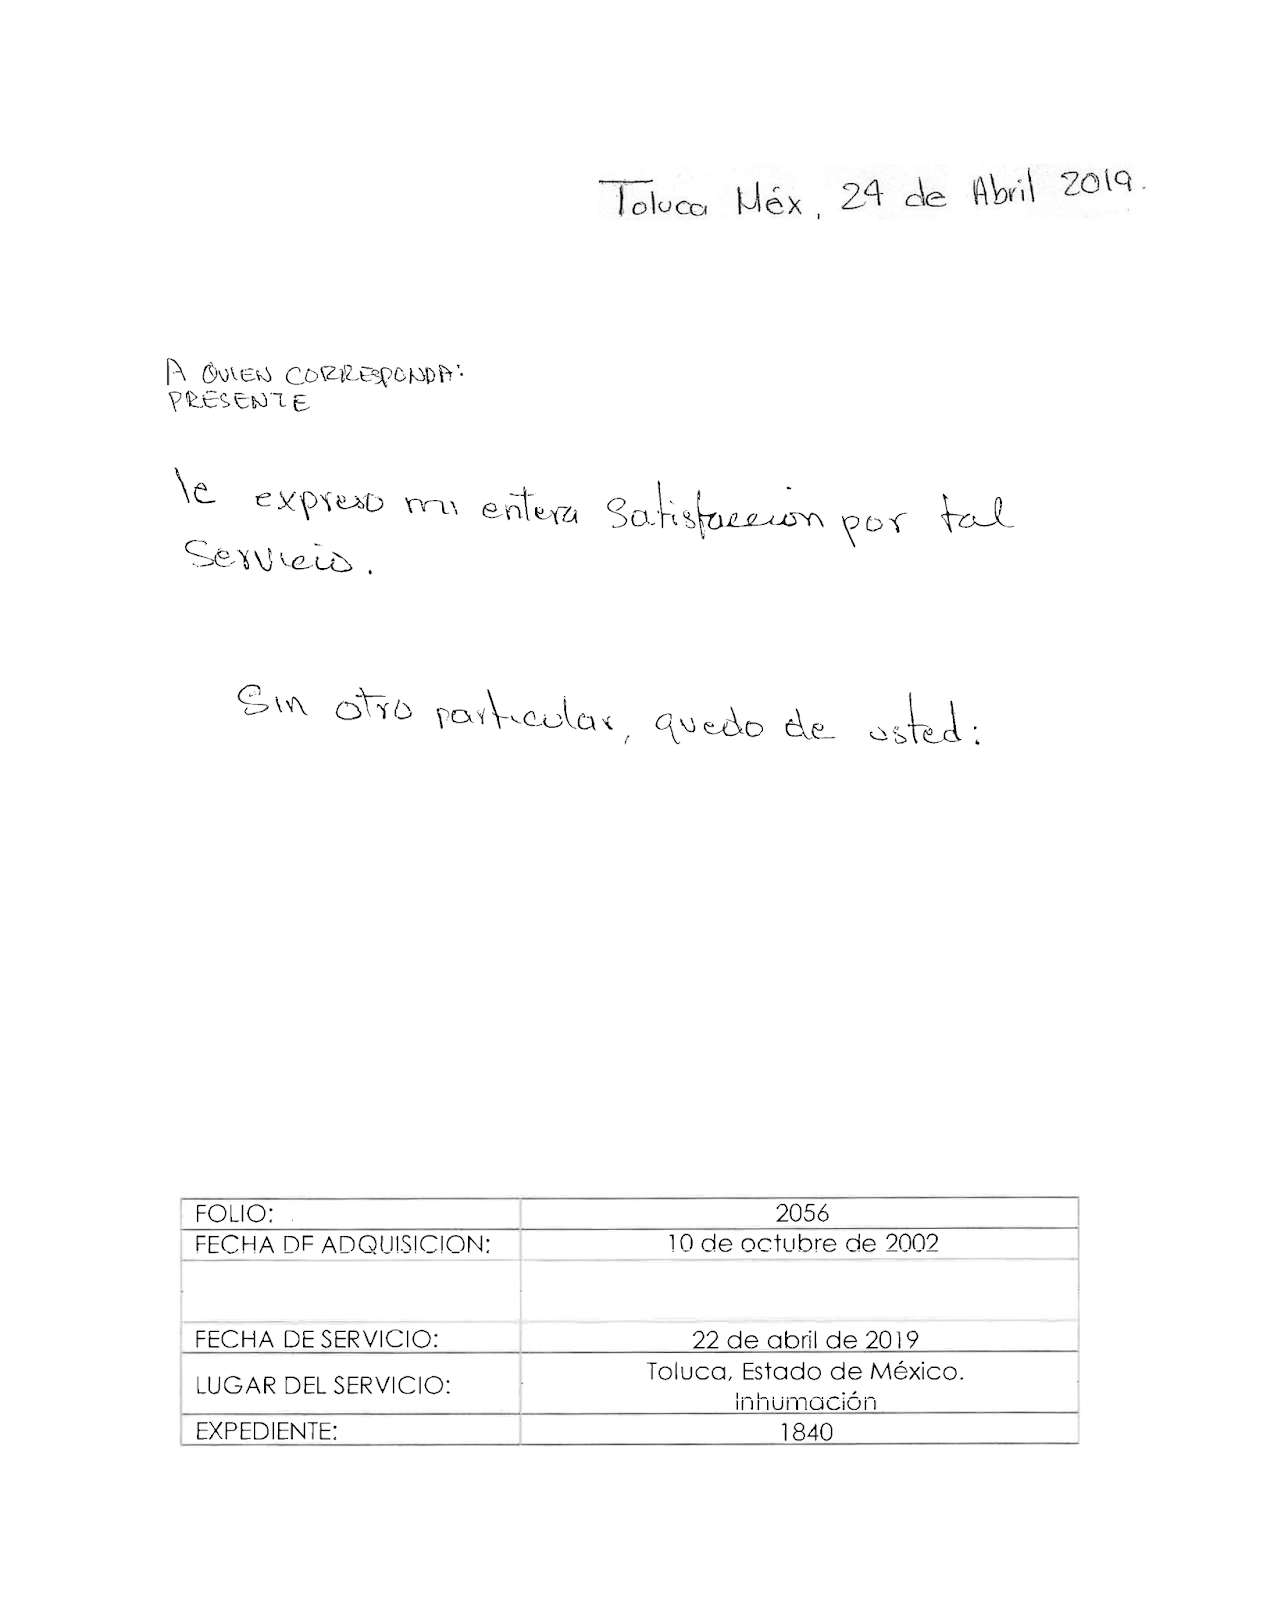 Toluca Méx, 24 de Abril 2019.
A QUIEN CORRESPONDA:
PRESENTE
le expreso mi entera satisfaccion por tal
servicio.
Sin otro particular, quedo de usted:
FOLIO: 2056
FECHA DE ADQUISICION: 10 de octubre de 2002
FECHA DE SERVICIO: 22 de abril de 2019
LUGAR DEL SERVICIO: Toluca, Estado de México.
Inhumación
EXPEDIENTE: 1840